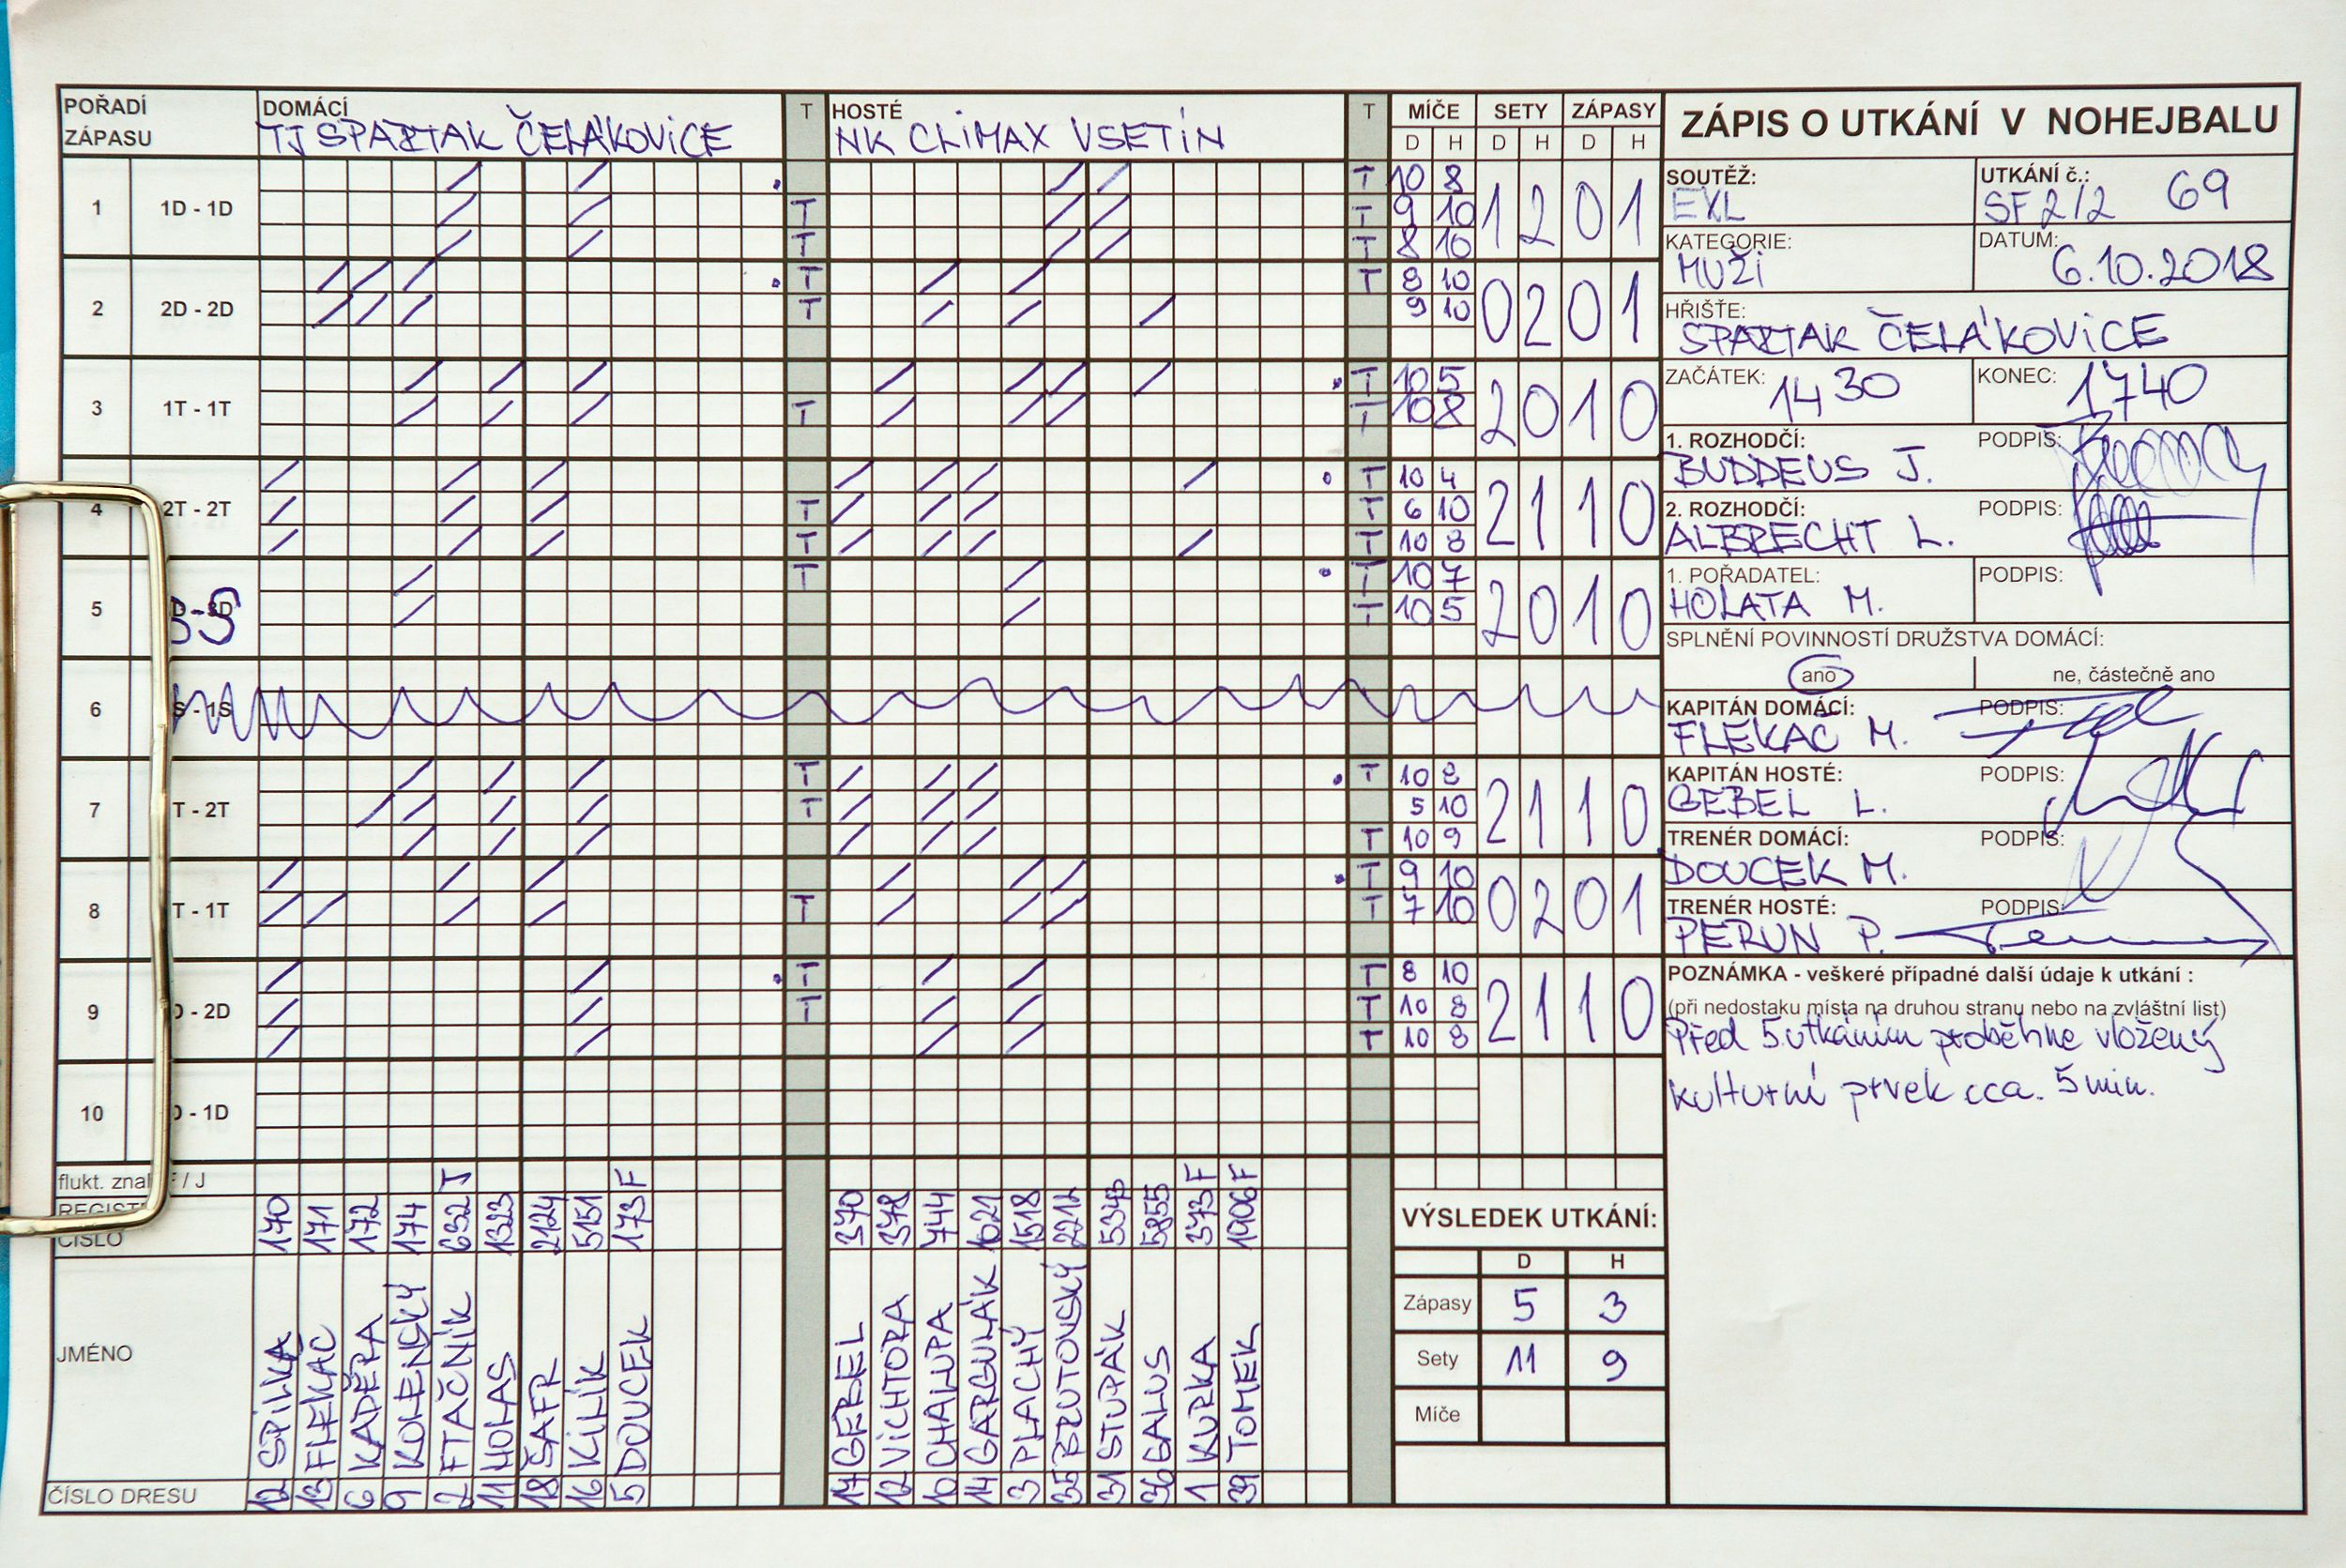 POŘADÍ ZÁPASU DOMÁCÍ T HOSTÉ T MÍČE SETY ZÁPASY
TJ SPARTAK ČELÁKOVICE NK CLIMAX VSETÍN D H D H D H
1 1D - 1D T 10 8 1 2 0 1
T T 9 10
T T 8 10
2 2D - 2D T T 8 10 0 2 0 1
T 9 10
3 1T - 1T T 10 5 2 0 1 0
T T 10 8
4 2T - 2T T 10 4 2 1 1 0
T T 6 10
T T 10 8
5 T T 10 7 2 0 1 0
T 10 5
6 S - 1S
7 T - 2T T T 10 8 2 1 1 0
T 5 10
T 10 9
8 T - 1T T 9 10 0 2 0 1
T T 7 10
9 D - 2D T T 8 10 2 1 1 0
T T 10 8
T 10 8
10 D - 1D
flukt. znak F / J J F F F
ČÍSLO 170 171 172 174 632 1323 2124 5151 173 370 378 744 1021 1518 2212 5343 5855 373 1906
JMÉNO SPILKA FLEKAČ KADĚRA KOLENSKÝ FTAČNÍK HOLAS ŠAFR KILÍK DOUCEK GEBEL VICHTORA CHALUPA GARGULÁK PLACHÝ BRUTOVSKÝ STUPÁK GALUS KURKA TOMEK
ČÍSLO DRESU 12 13 6 9 2 11 18 16 5 17 12 10 14 3 35 31 36 1 39
VÝSLEDEK UTKÁNÍ:
D H
Zápasy 5 3
Sety 11 9
Míče
ZÁPIS O UTKÁNÍ V NOHEJBALU
SOUTĚŽ: UTKÁNÍ č.:
EXL SF 2/2 69
KATEGORIE: DATUM:
MUŽI 6.10.2018
HŘIŠTE:
SPARTAK ČELÁKOVICE
ZAČÁTEK: 14 30 KONEC: 17 40
1. ROZHODČÍ: PODPIS:
BUDDEUS J.
2. ROZHODČÍ: PODPIS:
ALBRECHT L.
1. POŘADATEL: PODPIS:
HOLATA M.
SPLNĚNÍ POVINNOSTÍ DRUŽSTVA DOMÁCÍ:
ano ne, částečně ano
KAPITÁN DOMÁCÍ: PODPIS:
FLEKAČ M.
KAPITÁN HOSTÉ: PODPIS:
GEBEL L.
TRENÉR DOMÁCÍ: PODPIS:
DOUCEK M.
TRENÉR HOSTÉ: PODPIS:
PERUN P.
POZNÁMKA - veškeré případné další údaje k utkání :
(při nedostaku místa na druhou stranu nebo na zvláštní list)
Před 5.utkáním proběhne vložený
kulturní prvek cca. 5 min.